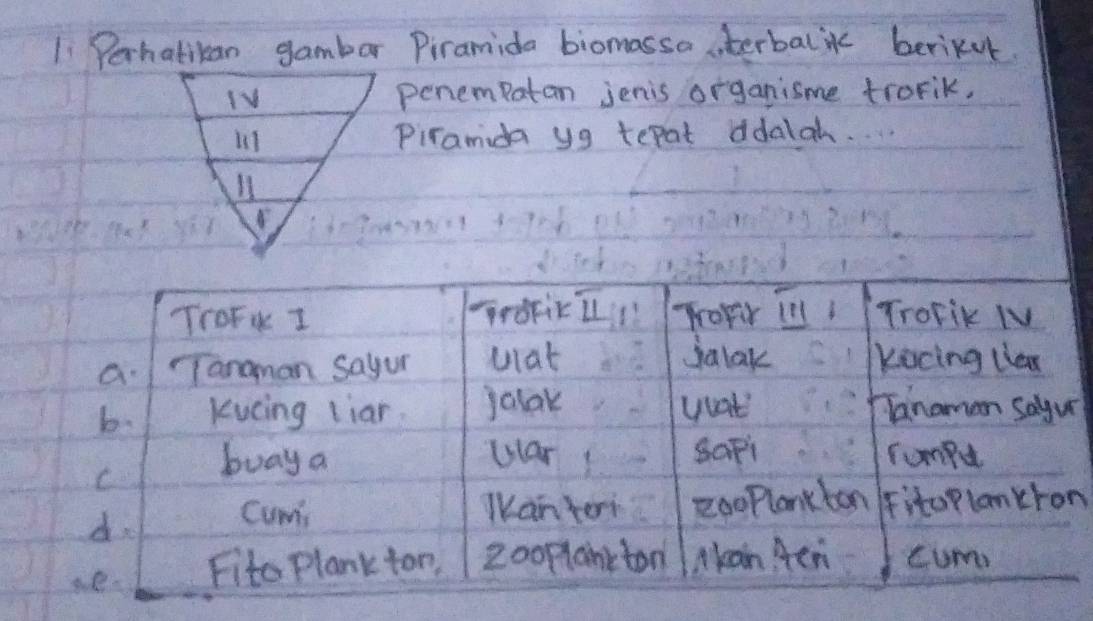 1. Perhatikan gambar Piramida biomassa terbalik berikut.
penempatan jenis organisme trofik.
Piramida yg tepat adalah....
IV
III
II
I
Trofik I Trofik II Trofik III Trofik IV
a. Tanaman sayur ulat jalak kucing liar
b. kucing liar jalak ulat Tanaman sayur
c buaya Ular sapi rumput
d. cumi Ikan teri zooplankton Fitoplankton
e. Fitoplankton, zooplankton ikan teri cumi